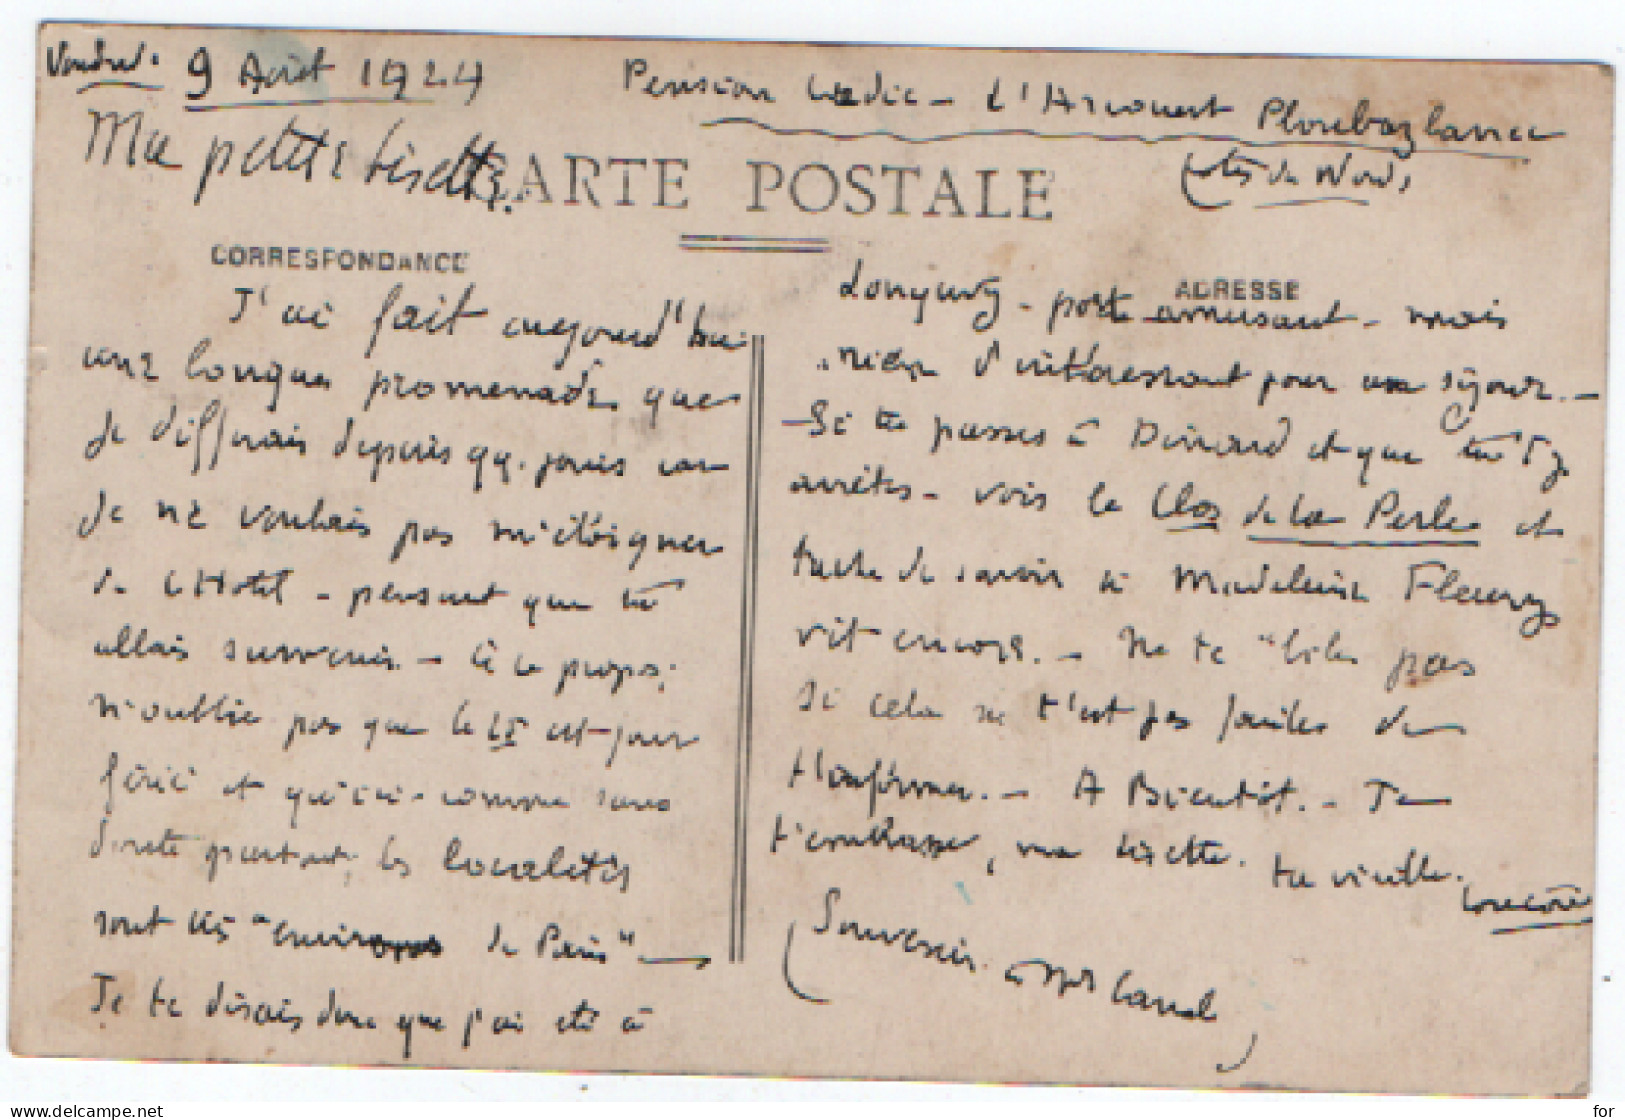 Vendredi 9 Août 1924
Pension - L'Arcouest Ploubazlanec
(Côtes du Nord)
Ma petite Lisette,
CARTE POSTALE
CORRESPONDANCE
J'ai fait aujourd'hui
une longue promenade que
je différais depuis qq. jours car
je ne voulais pas m'éloigner
de l'Hotel - pensant que tu
allais survenir. - à ce propos,
n'oublie pas que le 15 est jour
férié et qu'ici - comme sans
doute partout, les localités
sont des "environs de Paris"
Je te disais donc que j'ai été à
ADRESSE
Loguivy - port amusant - mais
rien d'intéressant pour un séjour. -
- Si tu passes à Dinard et que tu t'y
arrêtes - vois le Clos de la Perle et
tache de savoir si Madeleine Fleury
vit encore. - Ne te "biles pas
si cela ne t'est pas facile de
t'informer. - A Bientôt. - Je
t'embrasse, ma Lisette. ta vieille
(Souvenir à Mr